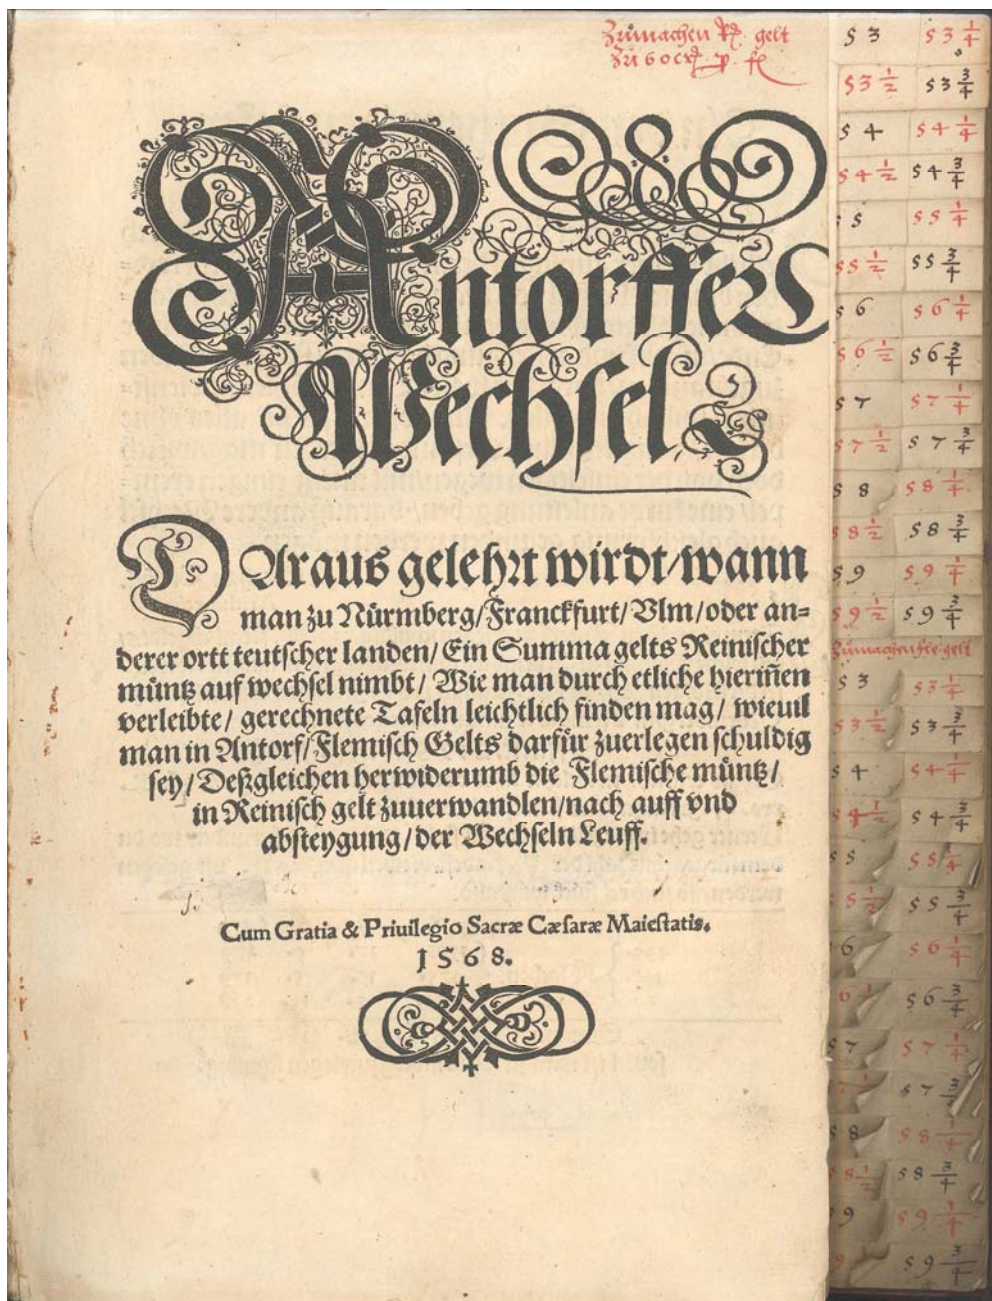 Zumachen gelt
Zu 60
Antorffer
Wechsel
DAraus gelehrt wirdt/wann
man zu Nürmberg/Franckfurt/Vlm/oder an=
derer ortt teutscher landen/Ein Summa gelts Reinischer
müntz auf wechsel nimbt/Wie man durch etliche hierin̄en
verleibte/gerechnete Tafeln leichtlich finden mag/wieuil
man in Antorf/Flemisch Gelts darfür zuerlegen schuldig
sey/Deßgleichen herwiderumb die Flemische müntz/
in Reinisch gelt zuuerwandlen/nach auff vnd
absteygung/der Wechseln Leuff.
Cum Gratia & Priuilegio Sacræ Cæsaræ Maiestatis.
1568.
53 53 1/4
53 1/2 53 3/4
54 54 1/4
54 1/2 54 3/4
5 55 1/4
55 1/2 55 3/4
56 56 1/4
56 1/2 56 3/4
57 57 1/4
57 1/2 57 3/4
58 58 1/4
58 1/2 58 3/4
59 59 1/4
59 1/2 59 3/4
Zumachen gelt
53 53 1/4
53 1/2 53 3/4
54 54 1/4
54 1/2 54 3/4
55 55 1/4
55 1/2 55 3/4
6 56 1/4
6 56 3/4
57 57 1/4
57 3/4
58 58 1/4
58 1/2 58 3/4
9 59 1/4
9 59 3/4